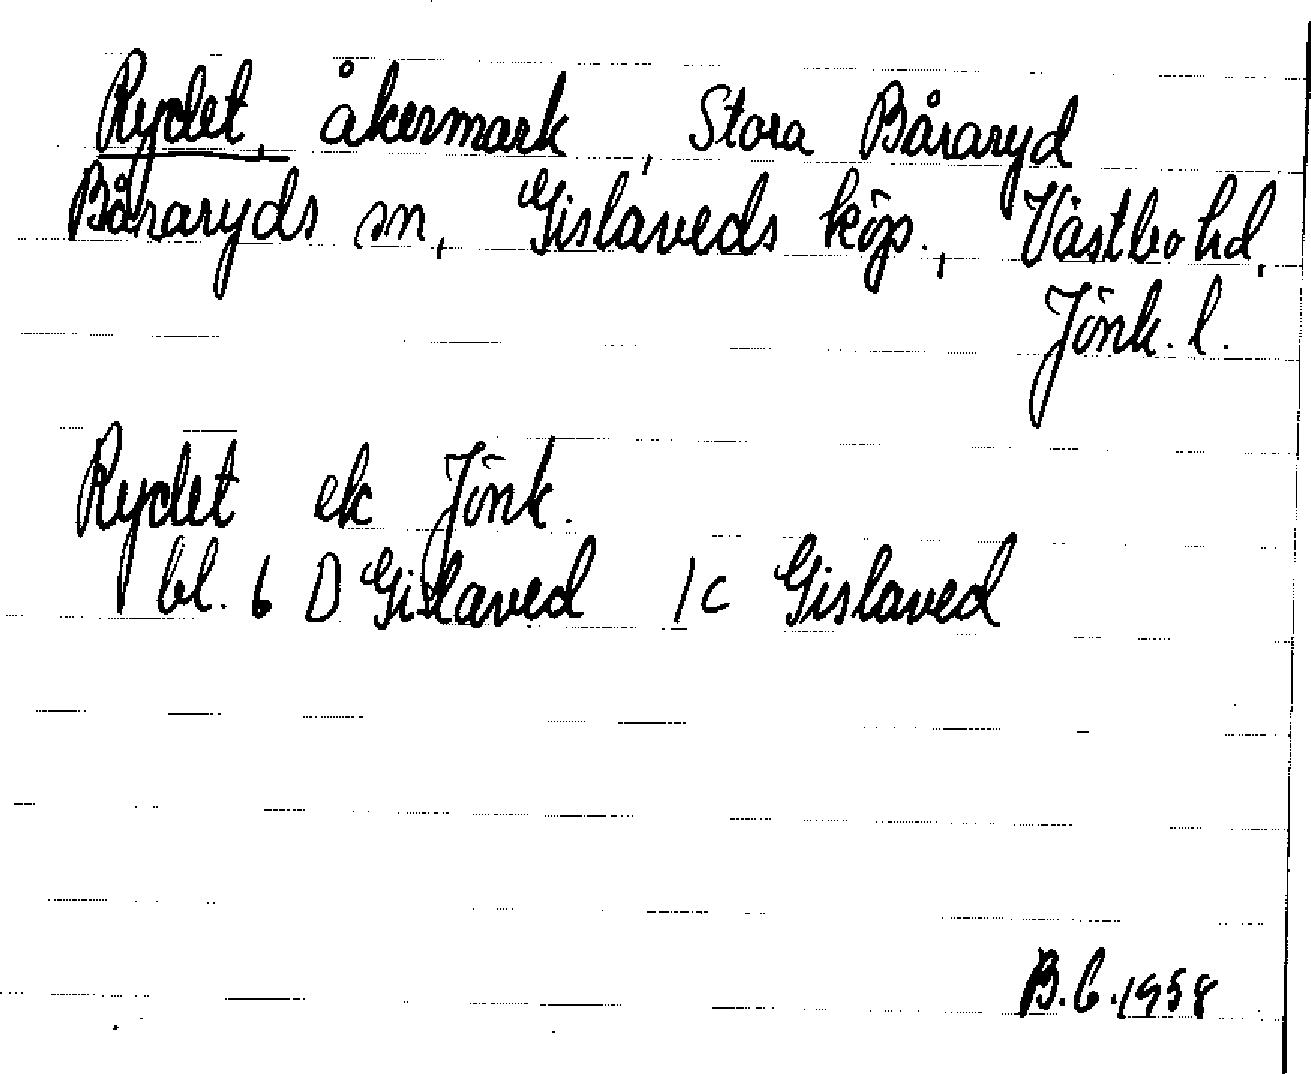 Rydet, åkermark, Stora Båraryd
Båraryds sn, Gislaveds köp., Västbo hd,
Jönk. l.
Rydet ek Jönk.
bl. 6 D Gislaved 1c Gislaved
B.G.1958